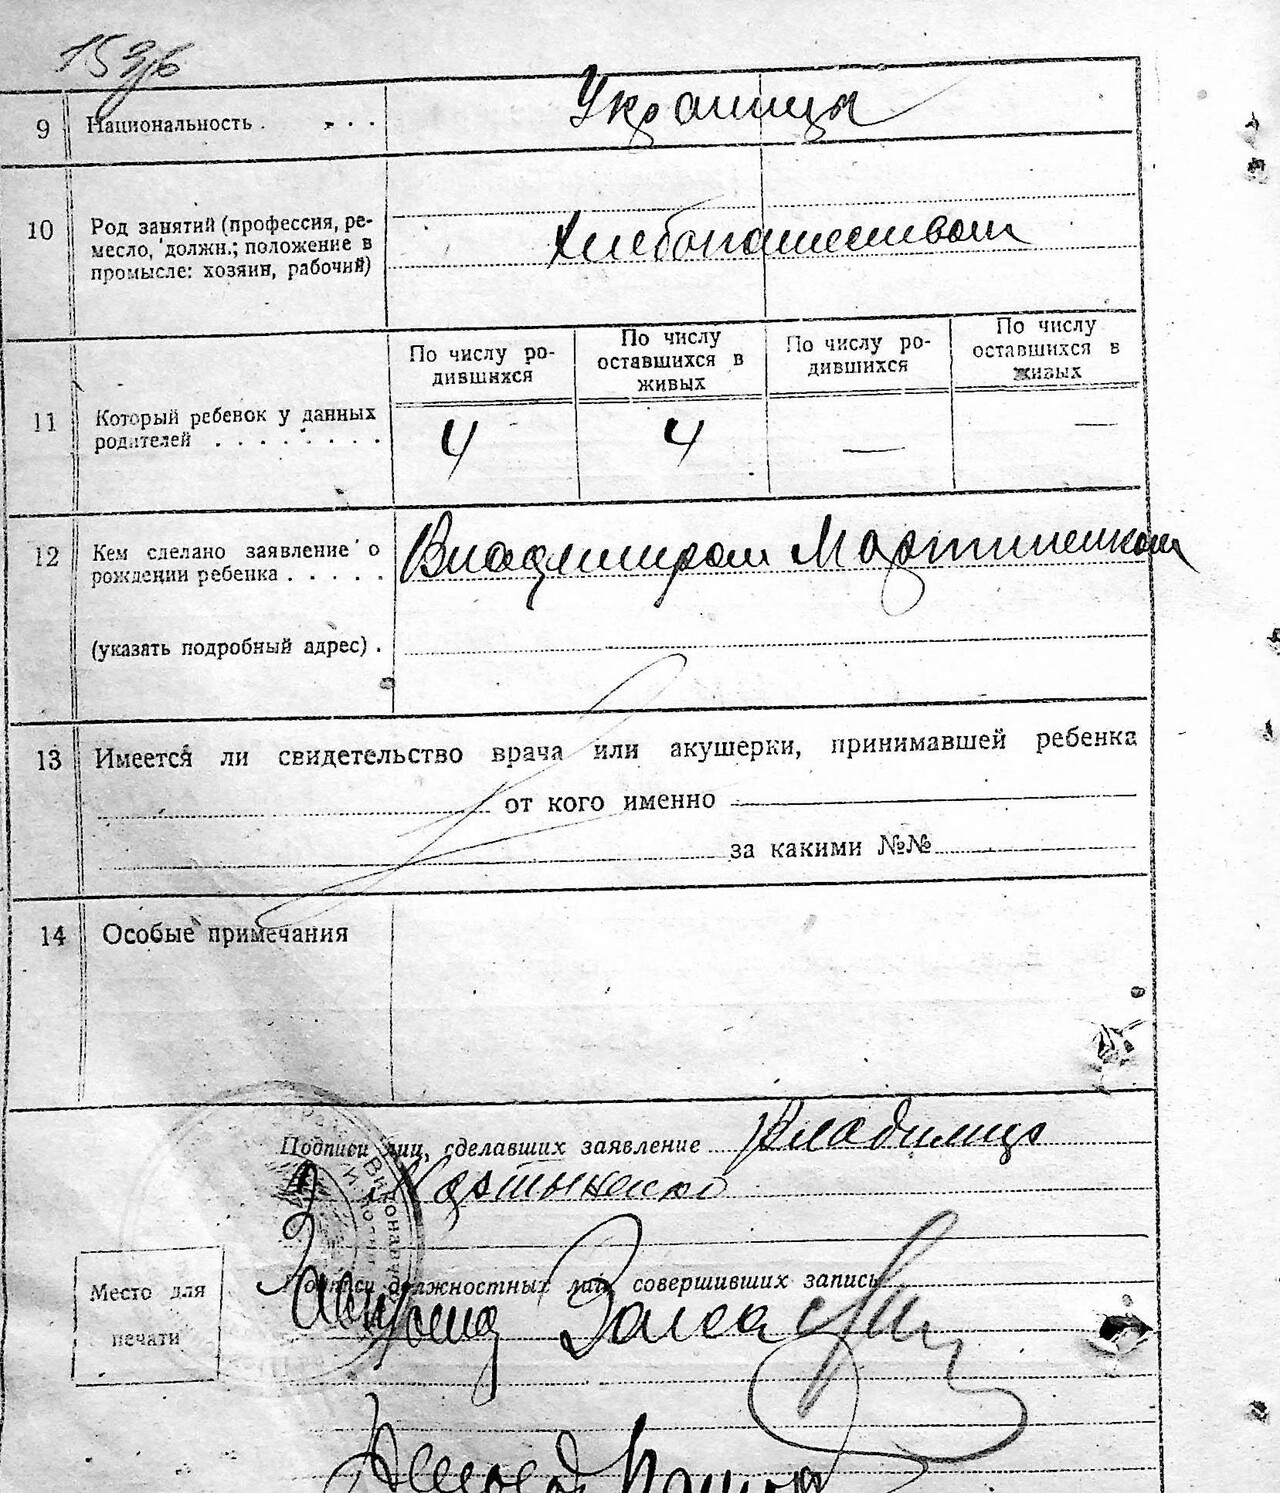 9 Национальность . . . . Украинцы
10 Род занятий (профессия, ре-
месло, должн.; положение в
промысле: хозяин, рабочий)
Хлебопашеством
По числу ро-
дившихся
По числу
оставшихся в
живых
По числу ро-
дившихся
По числу
оставшихся в
живых
11 Который ребенок у данных
родителей . . . . . . . .
4 4 — —
12 Кем сделано заявление о
рождении ребенка . . . . .
Владимиром Мартиненком
(указать подробный адрес) .
13 Имеется ли свидетельство врача или акушерки, принимавшей ребенка
от кого именно
за какими №№
14 Особые примечания
Подписи лиц, сделавших заявление Владимир
Мартыненко
Подписи должностных лиц совершивших запись
Место для
печати